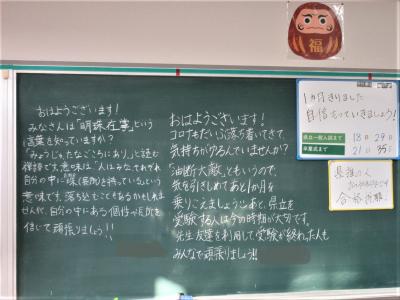 福
おはようございます!
みなさんは「明珠在掌」という
言葉を知っていますか?
「みょうじゅたなごころにあり」と読む
禅語です。意味は"人はみなそれぞれ
自分の中に珠(長所)を持っている"という
意味です。落ち込むこともあるかもしれま
せんが、自分の中にある個性や長所を
信じて頑張りましょう!!
おはようございます!
コロナもだいぶ落ち着いてきて、
気持ちがゆるんでいませんか?
「油断大敵」ともいうので、
気を引きしめてあと1か月を
乗りこえましょう。あと、県立を
受験する人は今の時期が大切です。
先生、友達を利用して、受験が終わった人も
みんなで頑張りましょう!!
1か月きりました
自信もっていきましょう!
県立一般入試まで 18日 29日
卒業式まで 21日 35日
合格祈願!